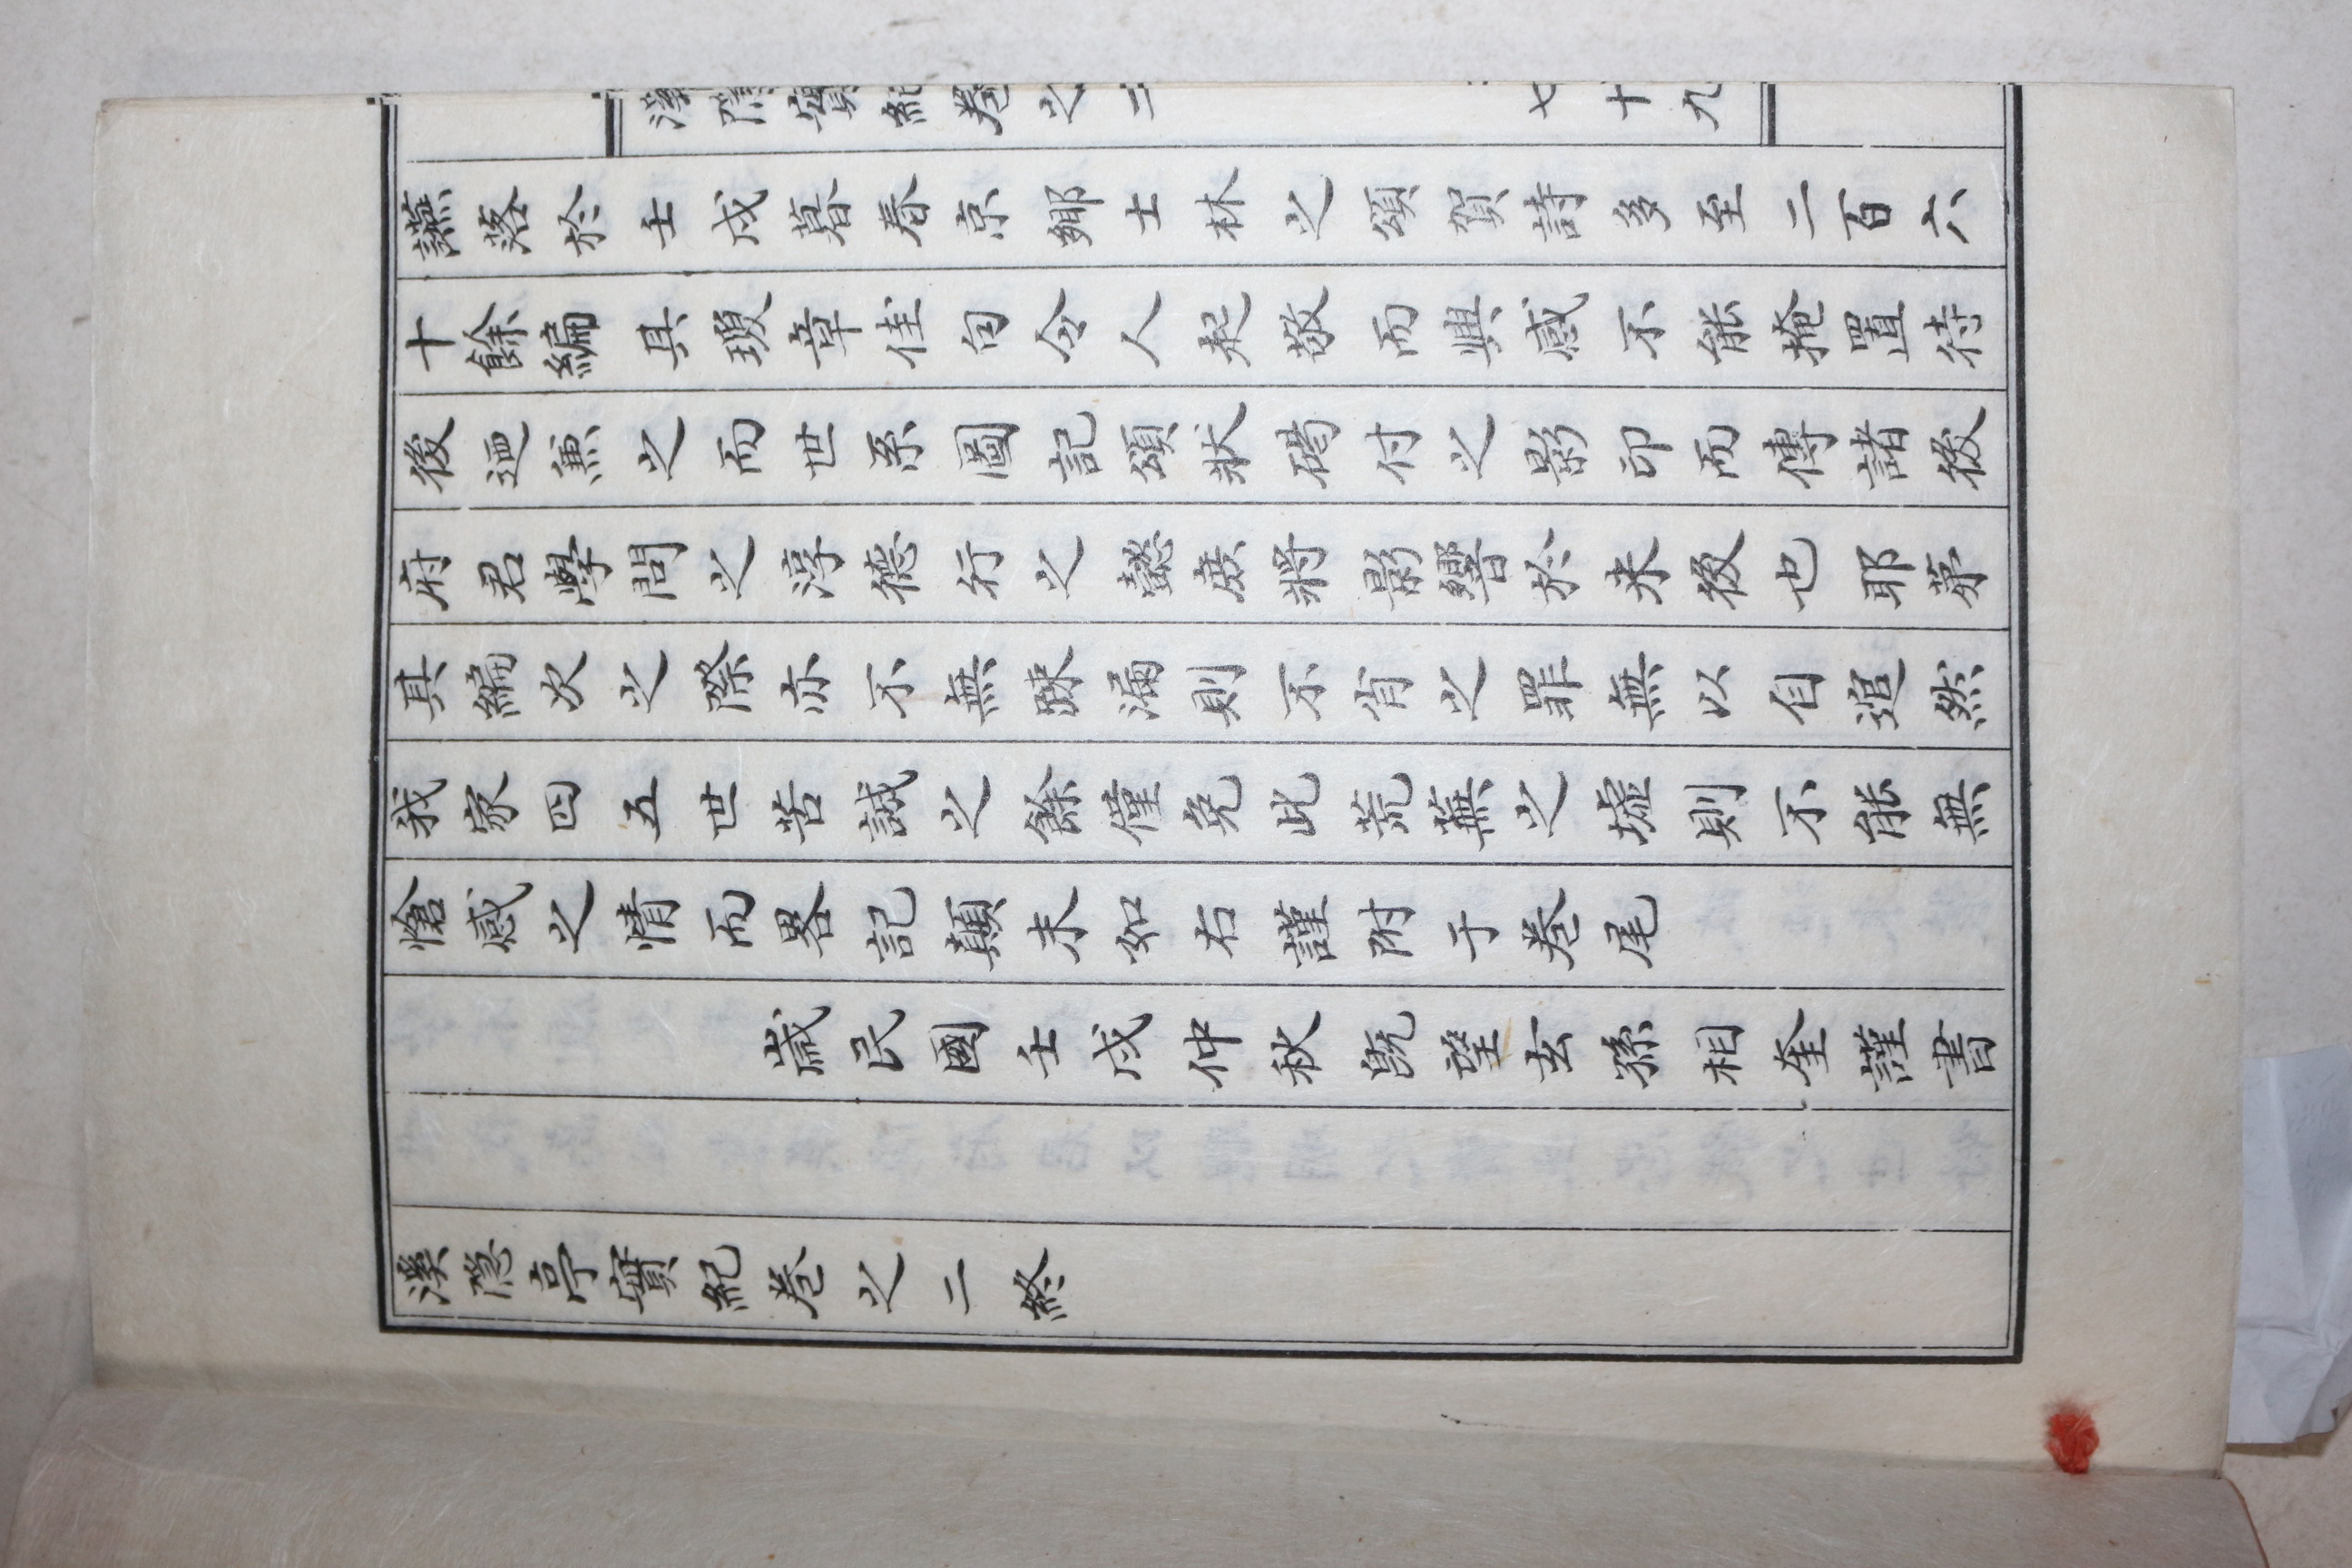 溪隱實紀卷之二 七十九
讌落於壬戌暮春京鄕士林之頌賀詩多至二百六
十餘編其瓊章佳句令人起敬而興感不能掩置待
後迺兼之而世系圖記頌狀碣付之影印而傳諸後
府君學問之淳德行之懿庶將影響於来後也耶苐
其編次之際亦不無踈漏則不肖之罪無以自逭然
我家四五世苦誠之餘僅免此荒蕪之墟則不能無
愴感之情而畧記顛末如右謹附于卷尾
歲民國壬戌仲秋旣望玄孫相奎謹書
溪隐亭實紀卷之二終